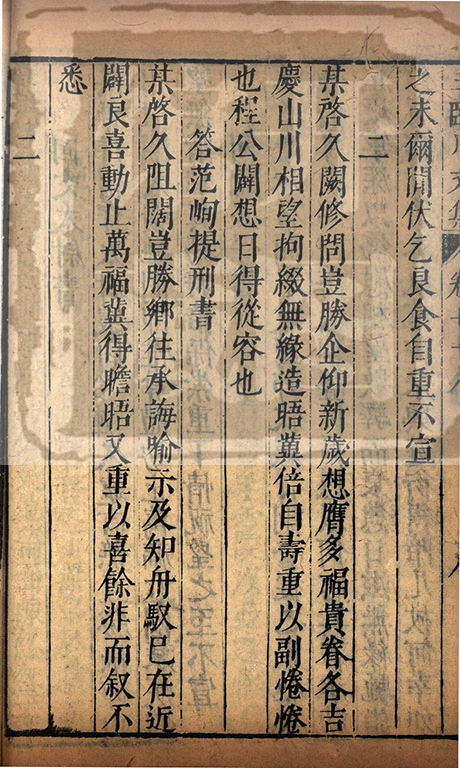 之未爾聞伏乞良食自重不宣
二
某啓久闕修問豈勝企仰新歲想膺多福貴眷各吉
慶山川相望拘綴無緣造晤冀倍自壽重以副惓惓
也程公闢想日得從容也
答范峋提刑書
某啓久阻闊豈勝鄉往承誨喻示及知舟馭已在近
闢良喜動止萬福冀得瞻晤又重以喜餘非而叙不
悉
二